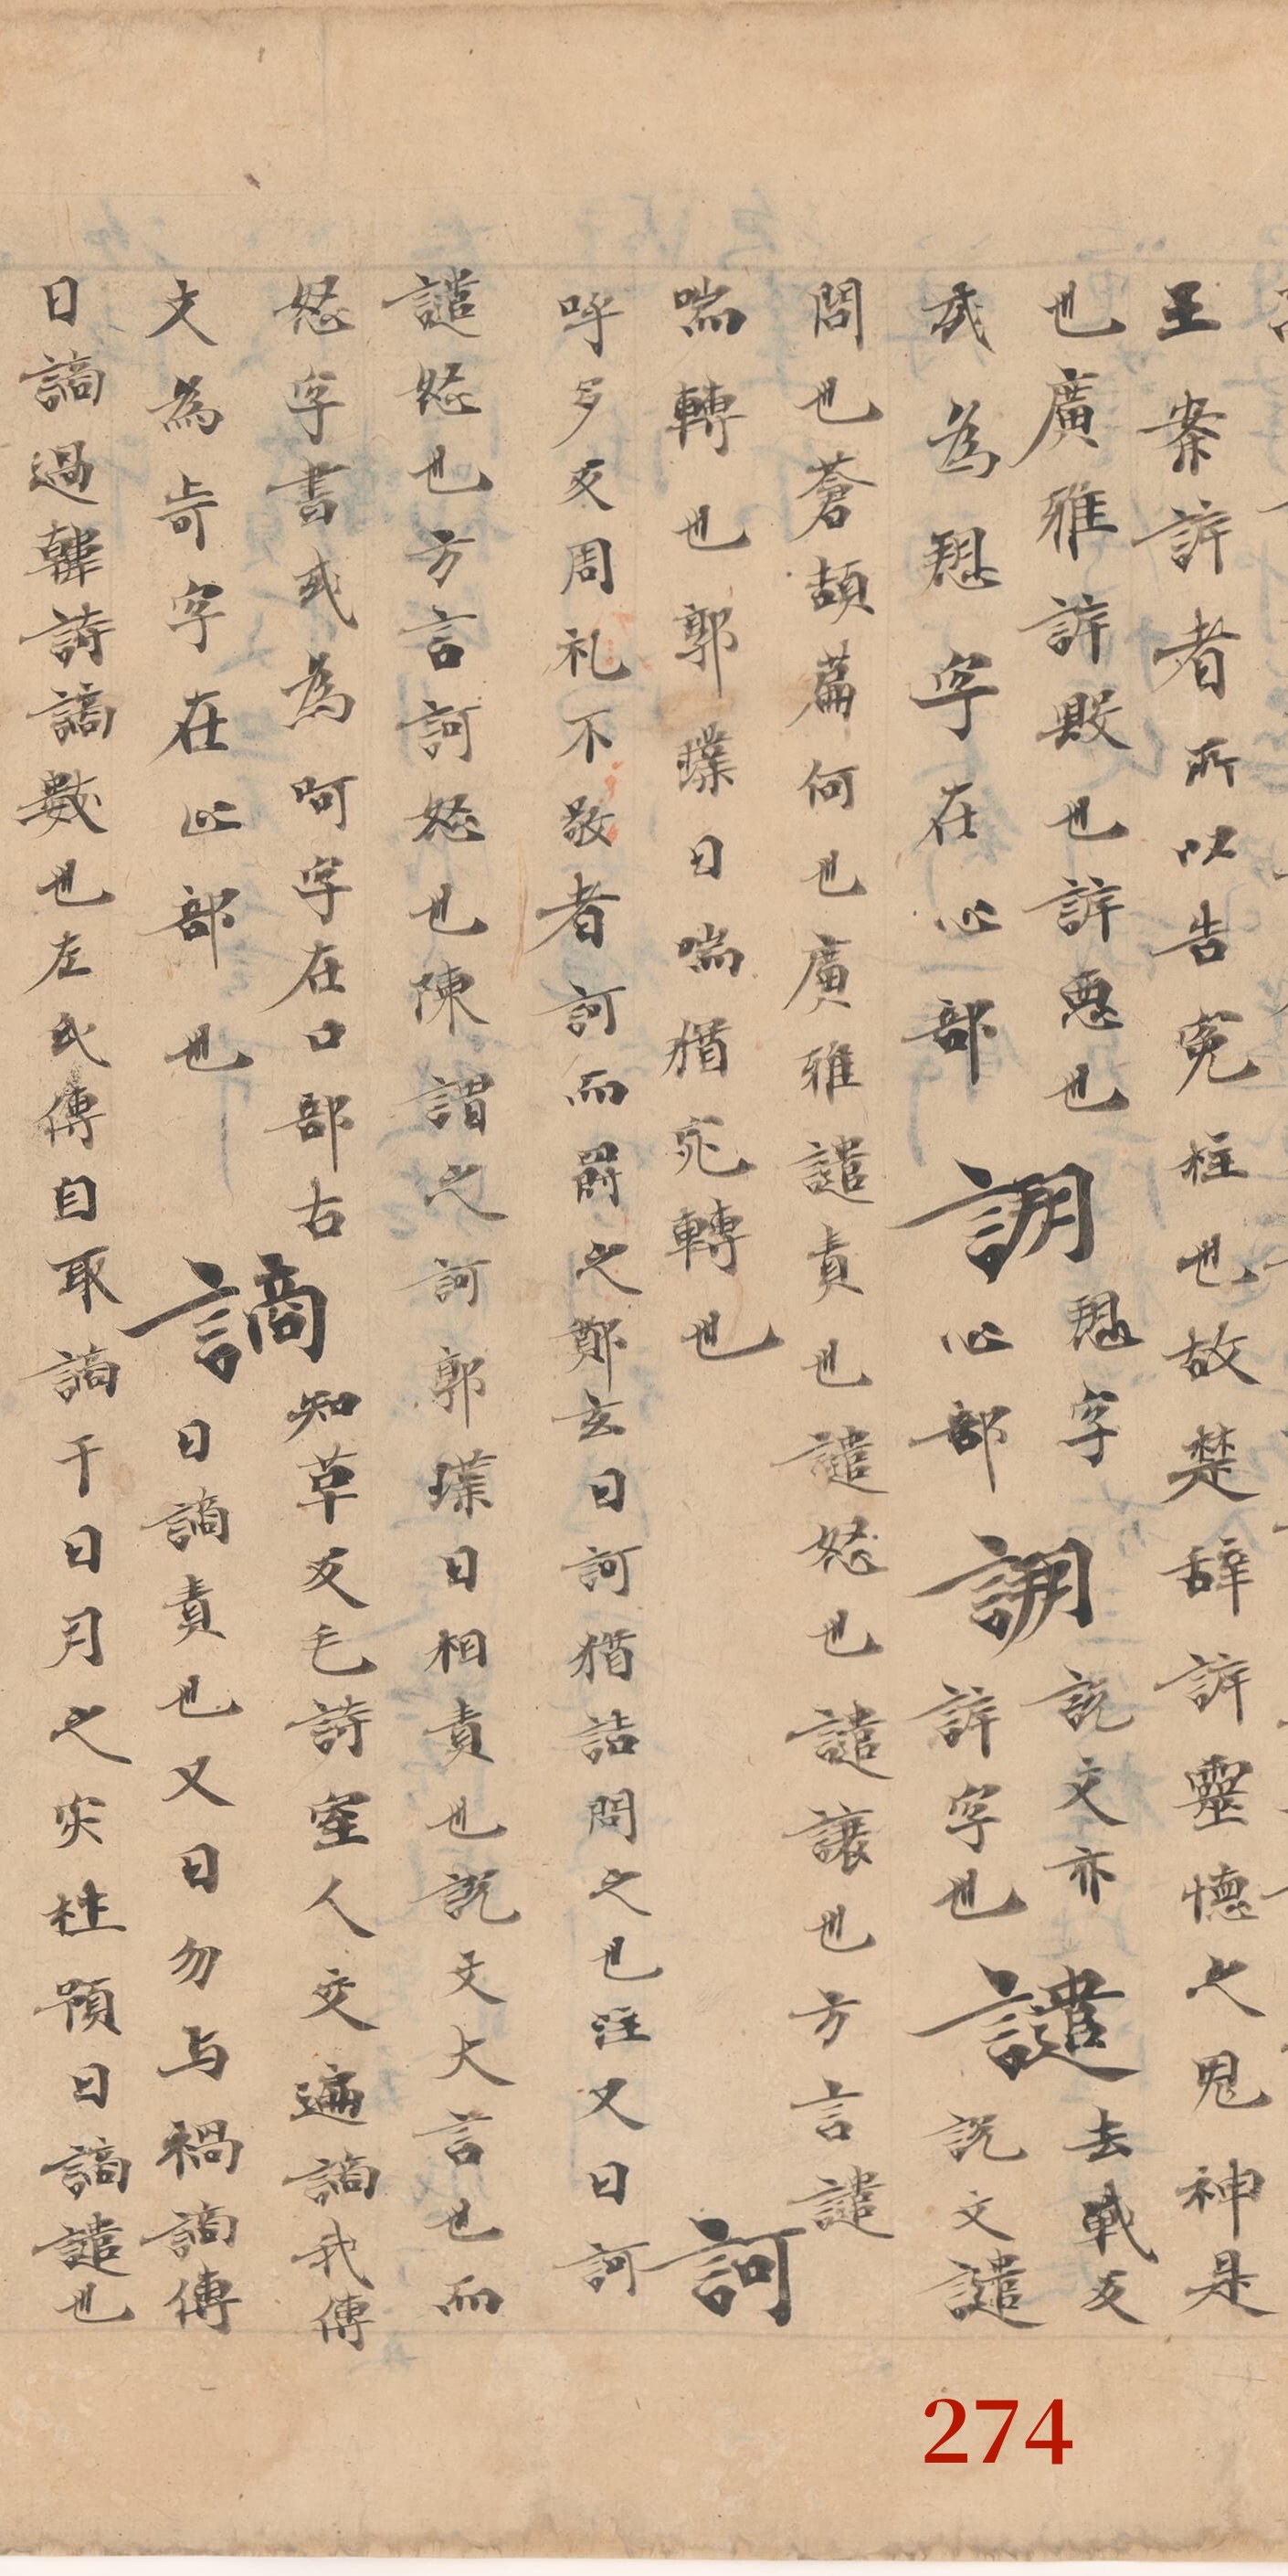 王案訴者所以告寃枉也故楚辞訴靈懷之鬼神是
也廣雅訴毀也訴惡也
或為愬字在心部
愬字
心部
說文亦
訴字也
譴
去戰反
說文譴
問也蒼頡萹何也廣雅譴責也譴怒也譴讓也方言譴
喘轉也郭璞曰喘猶宛轉也
訶
呼多反周礼不敬者訶而罰之鄭玄曰訶猶詰問之也注又曰訶
譴怒也方言訶怒也陳謂之訶郭璞曰相責也說文大言也而
怒字書或為呵字在口部右
文為㱒字在止部也
謫
知草反毛詩室人交遍謫我傳
曰謫責也又曰勿与禍謫傳
曰謫過韓詩謫數也左氏傳自取謫于日月之灾杜預曰謫譴也
274